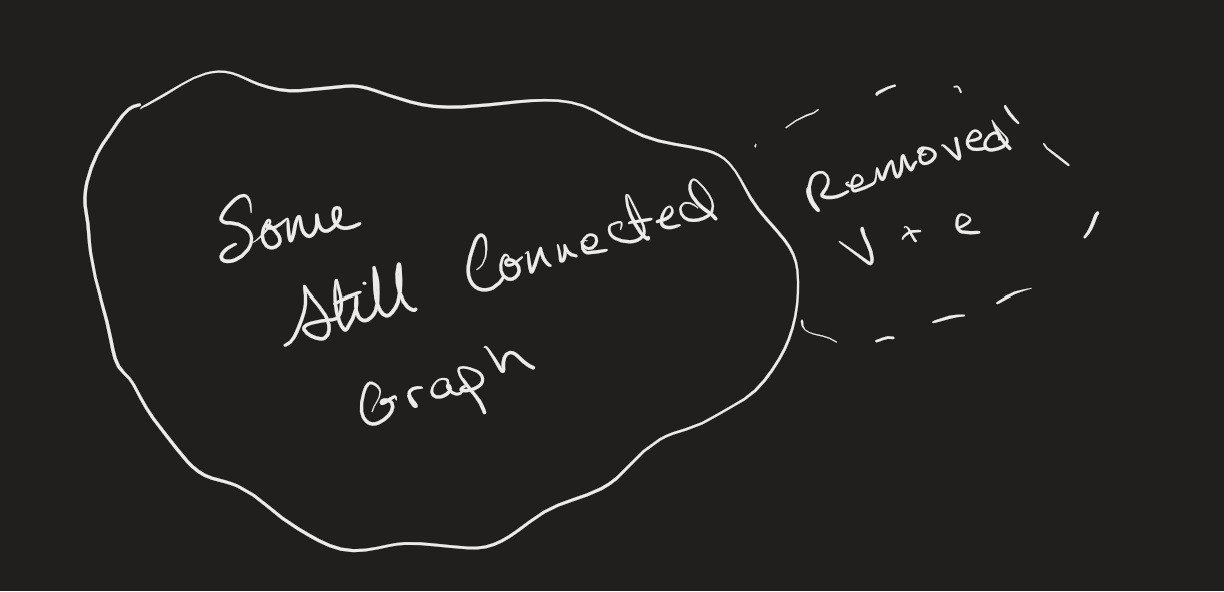 Some
Still Connected
Graph
Removed
V + e